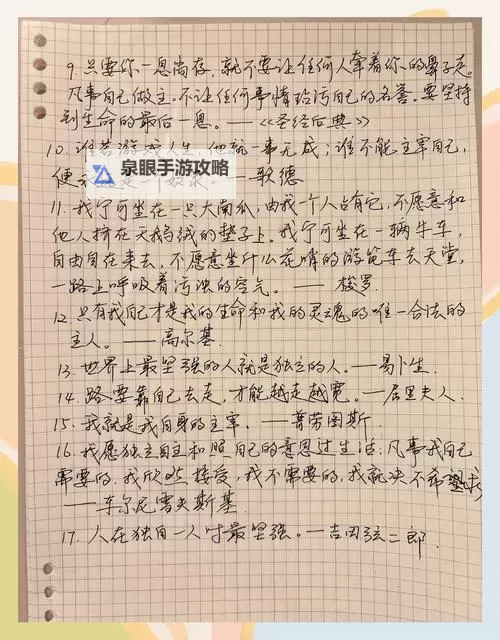 9. 只要你一息尚存, 就不要让任何人牵着你的鼻子走。
凡事自己做主。不让任何事情玷污自己的名誉。要坚持
到生命的最后一息。——《圣经后典》
10. 谁若游戏人生, 他就一事无成; 谁不能主宰自己,
便 是一个奴隶。——歌德
泉眼手游攻略
11. 我宁可坐在一只大南瓜, 由我一个人占有它, 不愿意和
他人挤在天鹅绒的垫子上。我宁可坐在一辆牛车,
自由自在来去, 不愿意坐什么花哨的游览车去天堂,
一路上呼吸着污浊的空气。——梭罗
12. 只有我自己才是我的生命和我的灵魂的唯一合法的
主人。——高尔基
13. 世界上最坚强的人就是独立的人。——易卜生
14. 路要靠自己去走, 才能越走越宽。——居里夫人
15. 我就是我自身的主宰。——普劳图斯
16. 我愿独立自主和照自己的意思过生活: 凡事我自己
需要的, 我欣然接受, 我不需要的, 我就决不希望求
——车尔尼雪夫斯基
17. 人在独自一人时最坚强。——吉田弦二郎